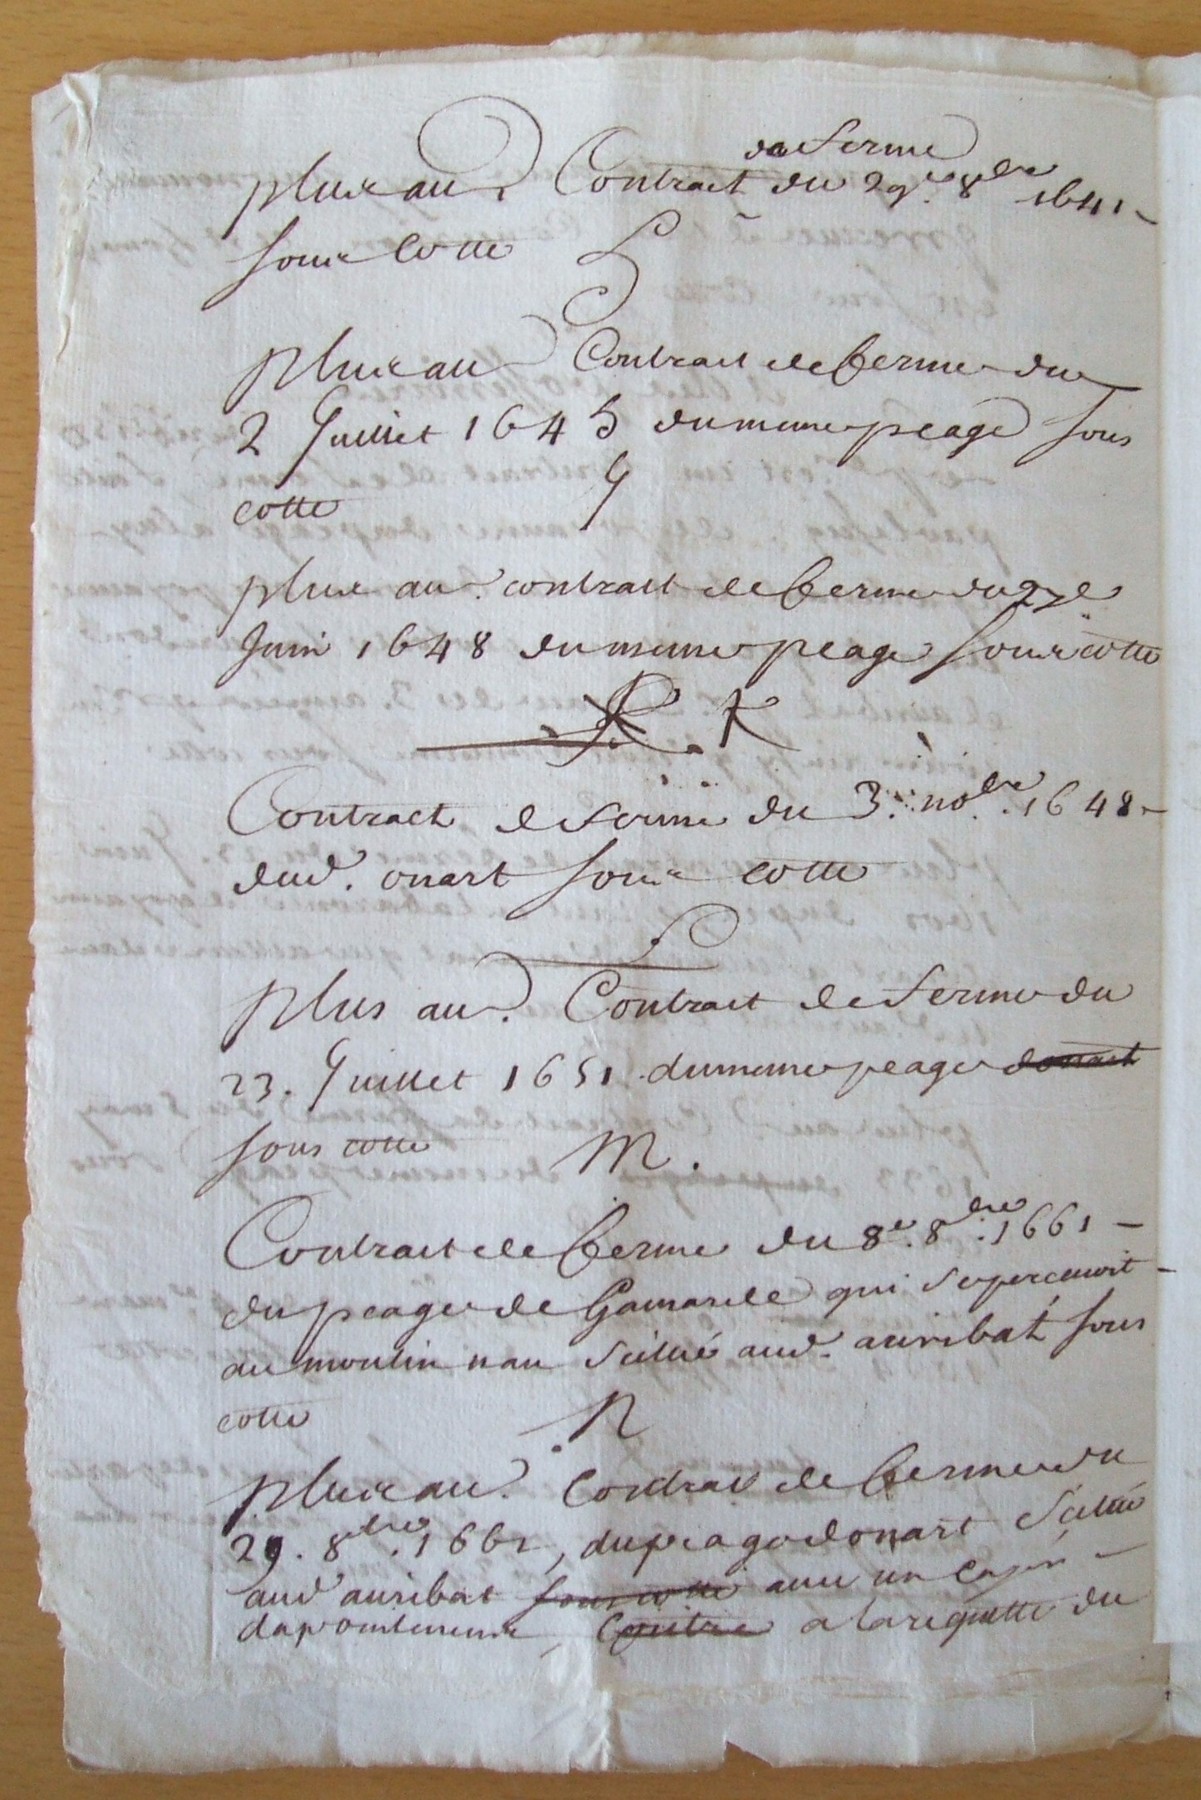 de ferme
plus au. Contract du 29e. 8bre 1641 -
sous cotte
plus au Contrait de ferme du
2 Juillet 1645 du meme peage sous
cotte
plus au. contrait de ferme du 27e
Juin 1648 du meme peage sous cotte
K
Contract de ferme du 3. nobre. 1648 -
dud. onart sous cotte
L
Plus au. Contrait de ferme du
23. Juillet 1651 du meme peage donart
sous cotte M.
Contrait de ferme du 8e. 8bre. 1661 -
du peage de Gamarde qui se percevoit -
au moulin nau scitué aud. auribat sous
cotte N
plus au. Contrait de ferme du
29. 8bre. 1661, du peage donart scitué
aud auribat sous cotte avec un
dapointement, Contre a la requette du